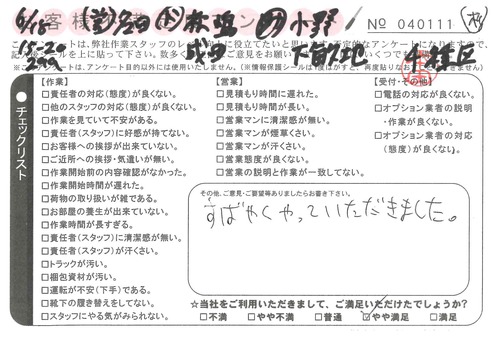 No 040111
このアンケートは、弊社作業スタッフのレ
アンケートになりますので、
【作業】
□責任者の対応(態度)が良くない。
□他のスタッフの対応(態度)が良くない。
□作業を見ていて不安がある。
□責任者(スタッフ)に好感が持てない。
□お客様への挨拶が出来ていない。
□ご近所への挨拶・気遣いが無い。
□作業開始前の内容確認がなかった。
□作業開始時間が遅れた。
□荷物の取り扱いが雑である。
□お部屋の養生が出来ていない。
□作業時間が長すぎる。
□責任者(スタッフ)に清潔感が無い。
□責任者(スタッフ)が汗くさい。
□トラックが汚い。
□梱包資材が汚い。
□運転が不安(下手)である。
□靴下の履き替えをしてない。
□スタッフにやる気がみられない。
【営業】
□見積もり時間に遅れた。
□見積もり時間が長い。
□営業マンに清潔感が無い。
□営業マンが煙草くさい。
□営業マンが汗くさい。
□営業態度が良くない。
□営業の説明と作業が一致してない。
【受付・その他】
□電話の対応が良くない。
□オプション業者の説明
・作業が良くない。
□オプション業者の対応
(態度)が良くない。
チェックリスト
その他、ご意見・ご要望等ありましたらお書き下さい。
すばやくやっていただきました。
☆当社をご利用いただきまして、ご満足いただけたでしょうか?
□不満 □やや不満 □普通 ☑やや満足 □満足